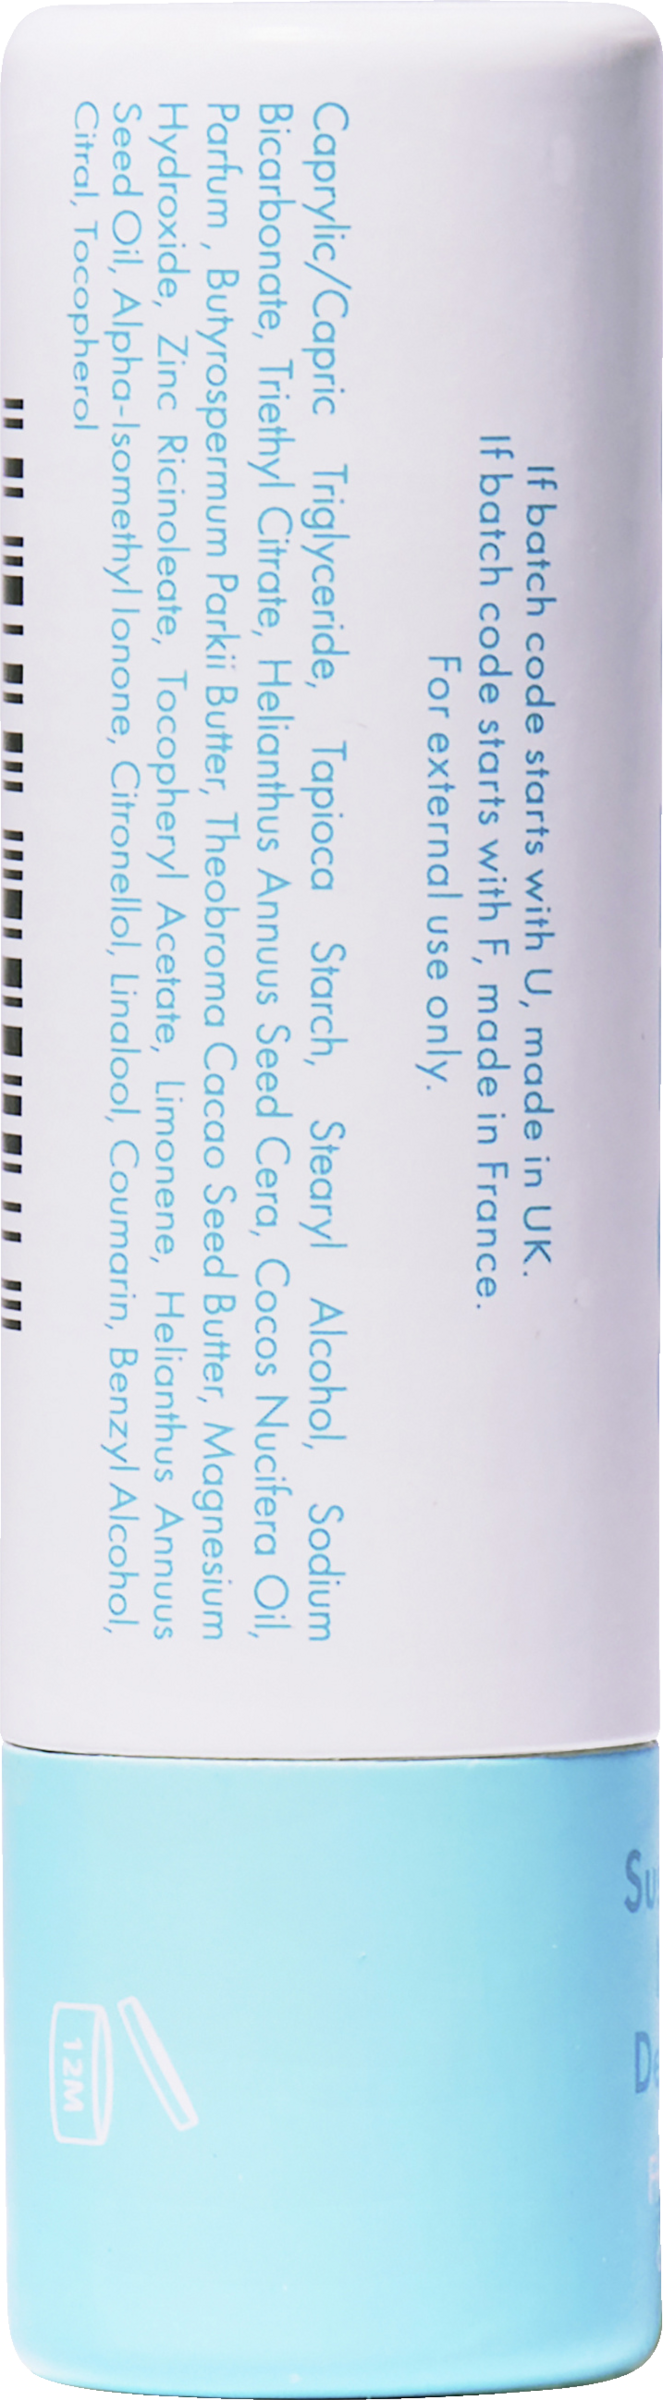 If batch code starts with U, made in UK.
If batch code starts with F, made in France.
For external use only.
Caprylic/Capric Triglyceride, Tapioca Starch, Stearyl Alcohol, Sodium
Bicarbonate, Triethyl Citrate, Helianthus Annuus Seed Cera, Cocos Nucifera Oil,
Parfum , Butyrospermum Parkii Butter, Theobroma Cacao Seed Butter, Magnesium
Hydroxide, Zinc Ricinoleate, Tocopheryl Acetate, Limonene, Helianthus Annuus
Seed Oil, Alpha-Isomethyl Ionone, Citronellol, Linalool, Coumarin, Benzyl Alcohol,
Citral, Tocopherol
12M